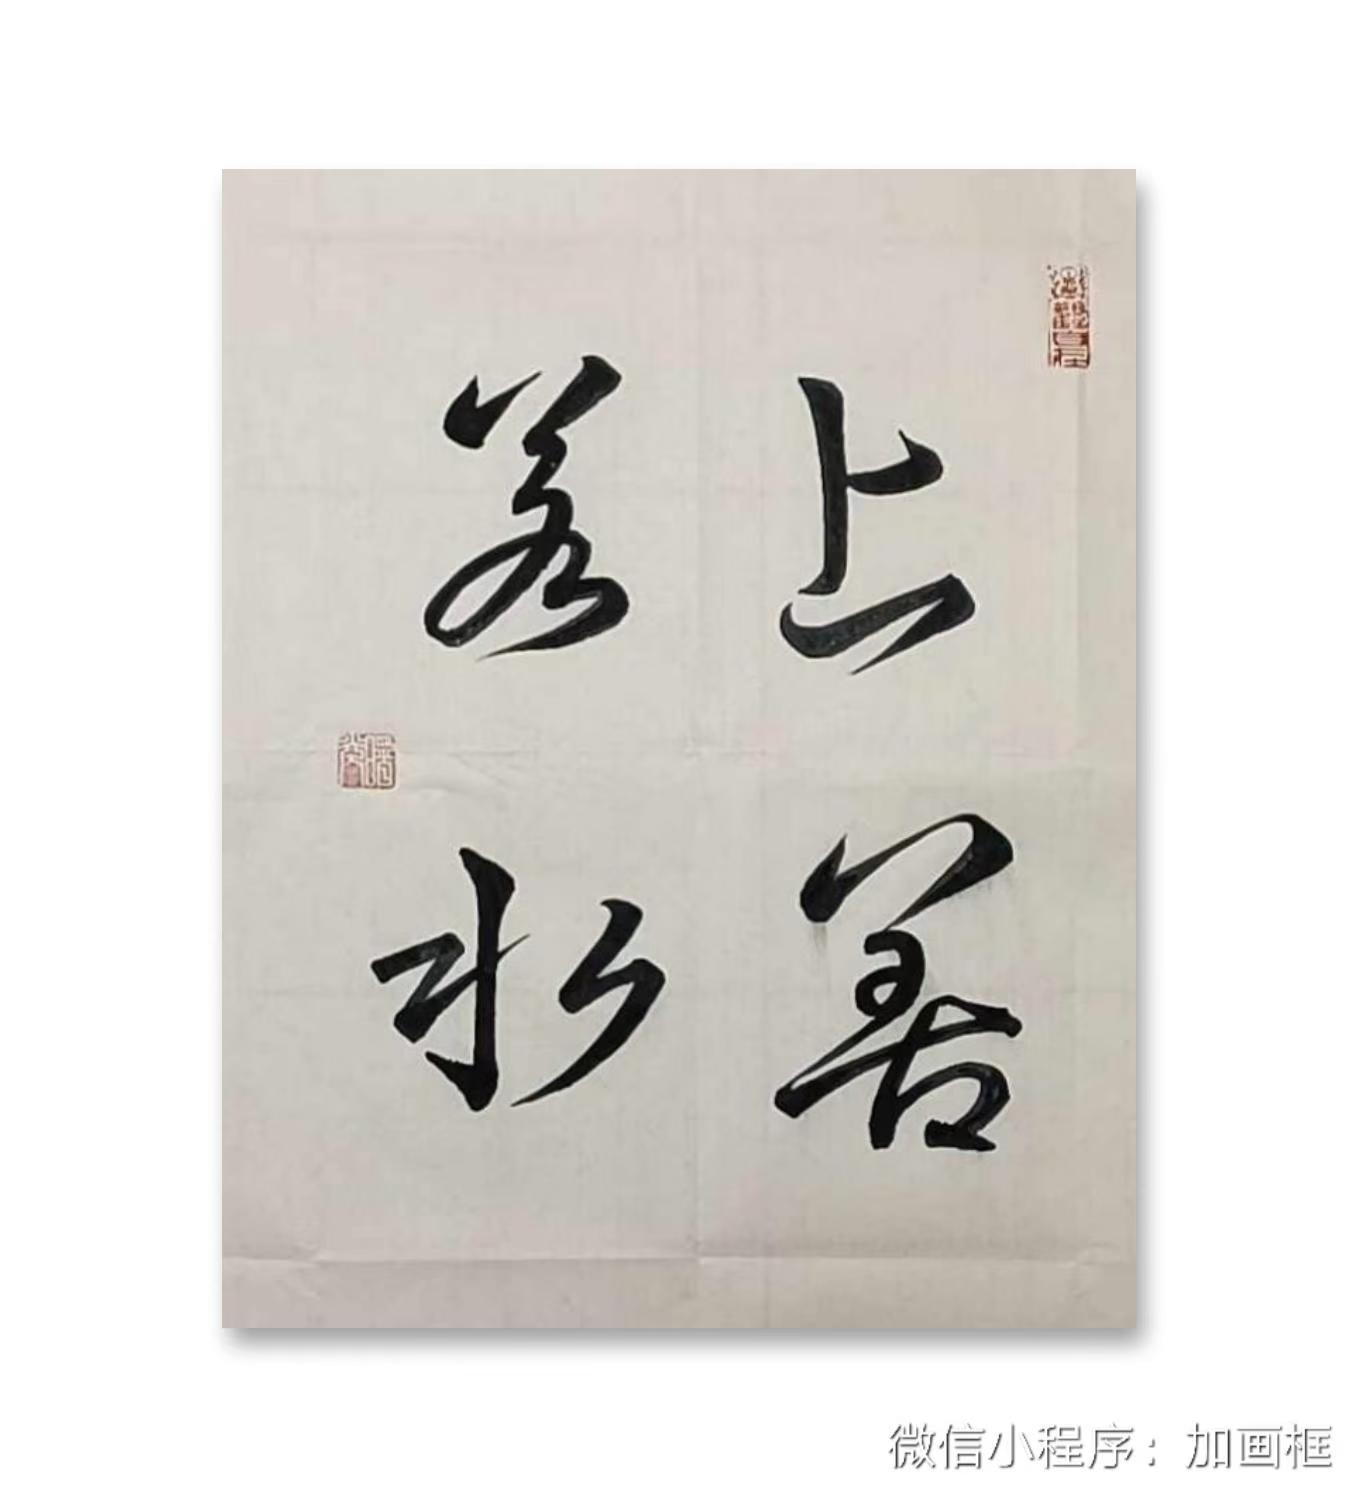 上善
若水
微信小程序：加画框